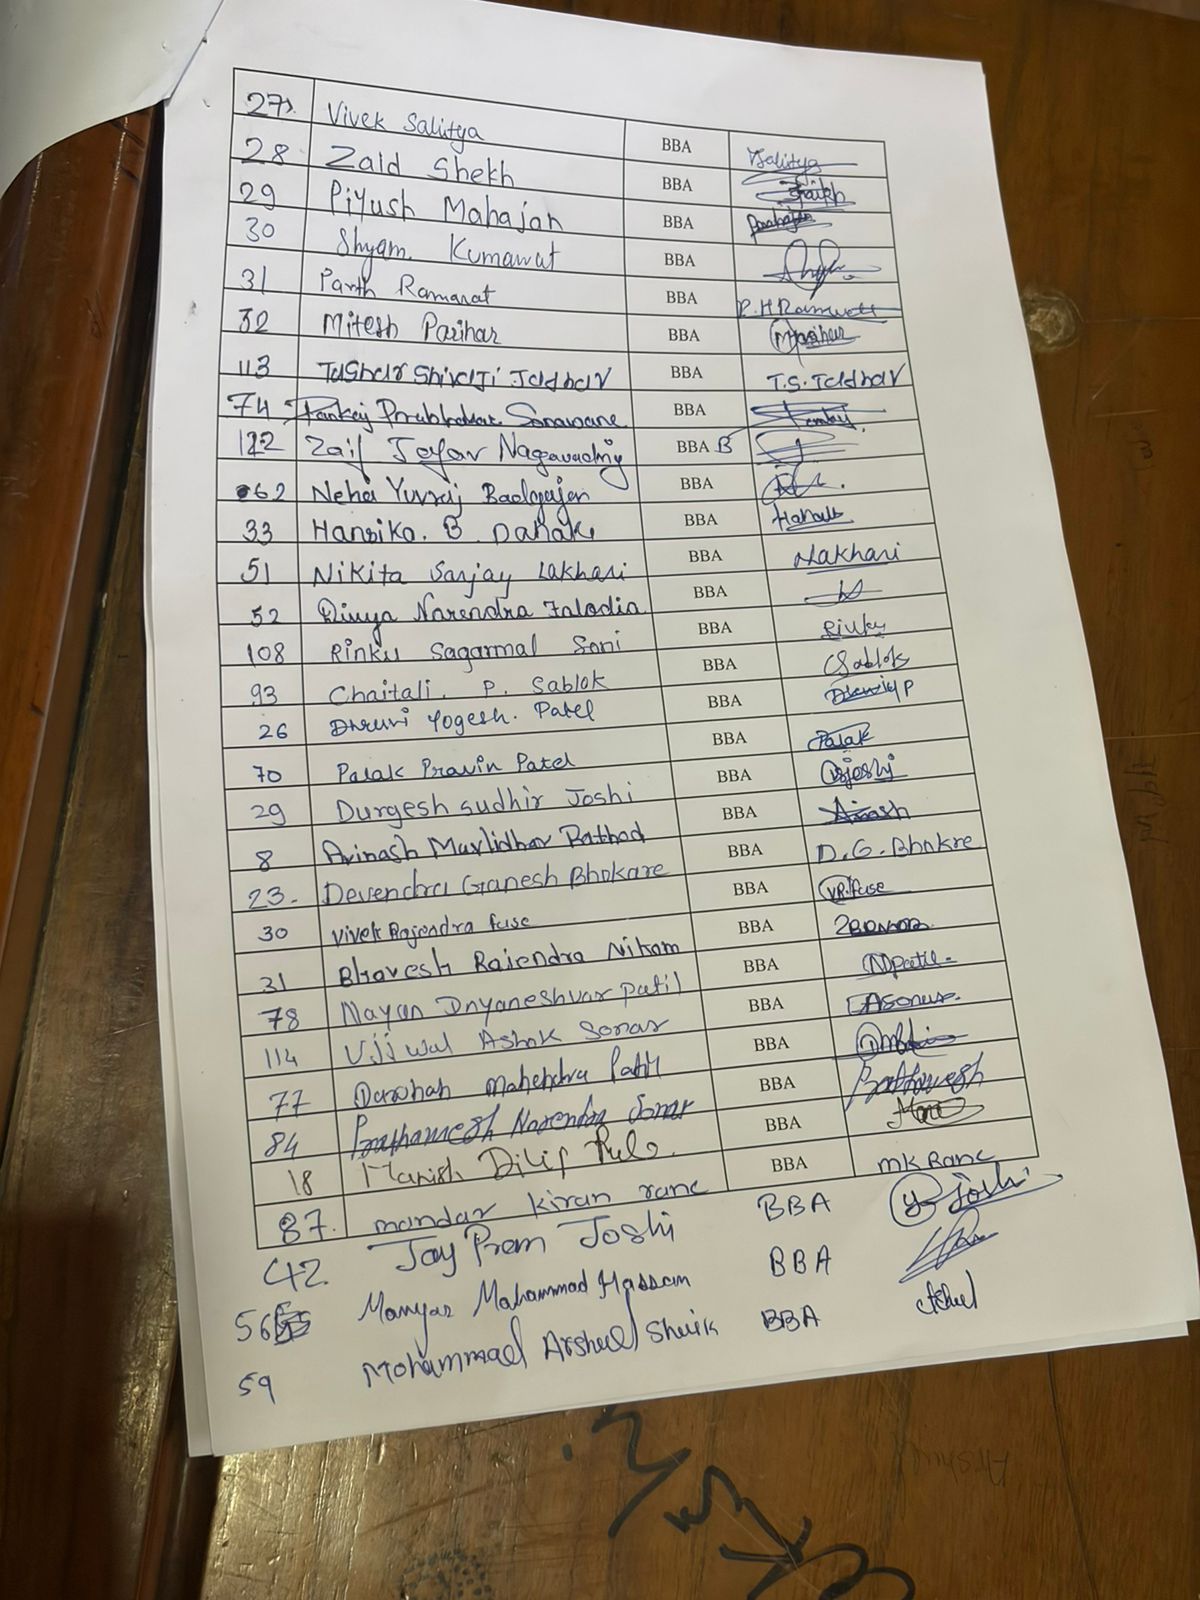 27. Vivek Salitya BBA Salitya
28 Zaid Shekh BBA Shaikh
29 Piyush Mahajan BBA
30 Shyam. Kumawat BBA
31 Parth Ramawat BBA P.H Ramwett
32 Mitesh Parihar BBA Mparihar
113 Tushar Shivaji Jadhav BBA T.S. Jadhav
74 Pankaj Prabhakar Sonawane BBA Pankaj
122 Zaif Jafar BBA B
62 Neha Yuvraj BBA
33 Hansika. B. Dahake BBA
51 Nikita Sanjay Lakhari BBA Lakhari
52 Divya Narendra Falodia BBA
108 Rinku Sagarmal Soni BBA Rinky
93 Chaitali. P. Sablok BBA CSablok
26 Dhruvi Yogesh. Patel BBA
70 Palak Pravin Patel BBA Palak
29 Durgesh Sudhir Joshi BBA Dsjoshi
8 Avinash Murlidhar Rathod BBA Avinash
23. Devendra Ganesh Bhokare BBA D.G. Bhokre
30 Vivek Rajendra fuse BBA VR.fuse
31 Bhavesh Rajendra Nikam BBA
78 Nayan Dnyaneshvar patil BBA NDpatil.
114 Ujjwal Ashok Sonar BBA
77 Darshan Mahendra Patil BBA
84 Prathamesh Narendra Sonar BBA Prathamesh
18 Manish Dilip BBA
87. mandar kiran rane BBA MK Rane
42 Jay Prem Joshi BBA Joshi
56 Manyar Mohammad Hassan BBA
59 Mohammad Arshed Shaik BBA